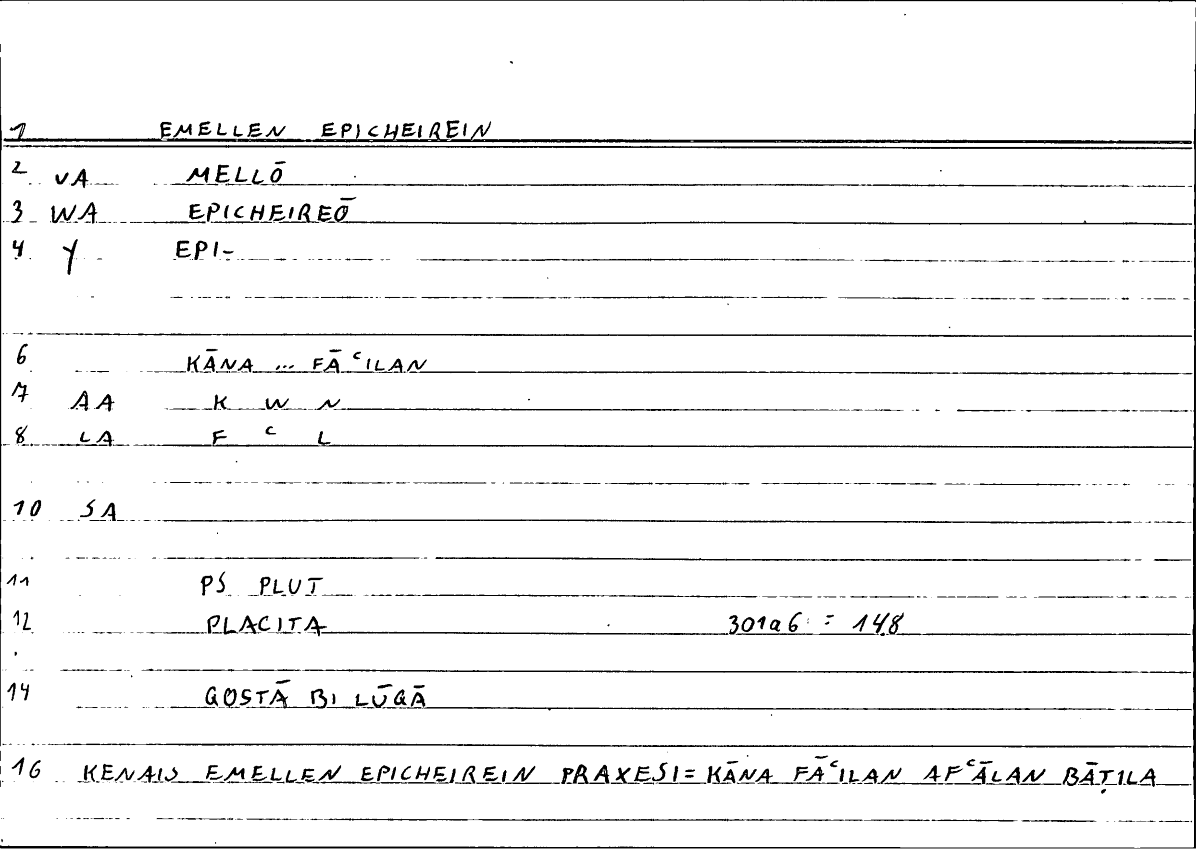 1 EMELLEN EPICHEIREIN
2 VA MELLŌ
3 WA EPICHEIREŌ
4 Y EPI-
6 KĀNA ... FĀʿILAN
7 AA K W N
8 LA F ʿ L
10 SA
11 PS PLUT
12 PLACITA 301a6 = 14,8
14 QOSTĀ BI LŪQĀ
16 KENAIS EMELLEN EPICHEIREIN PRAXESI = KĀNA FĀʿILAN AFʿĀLAN BĀṬILA